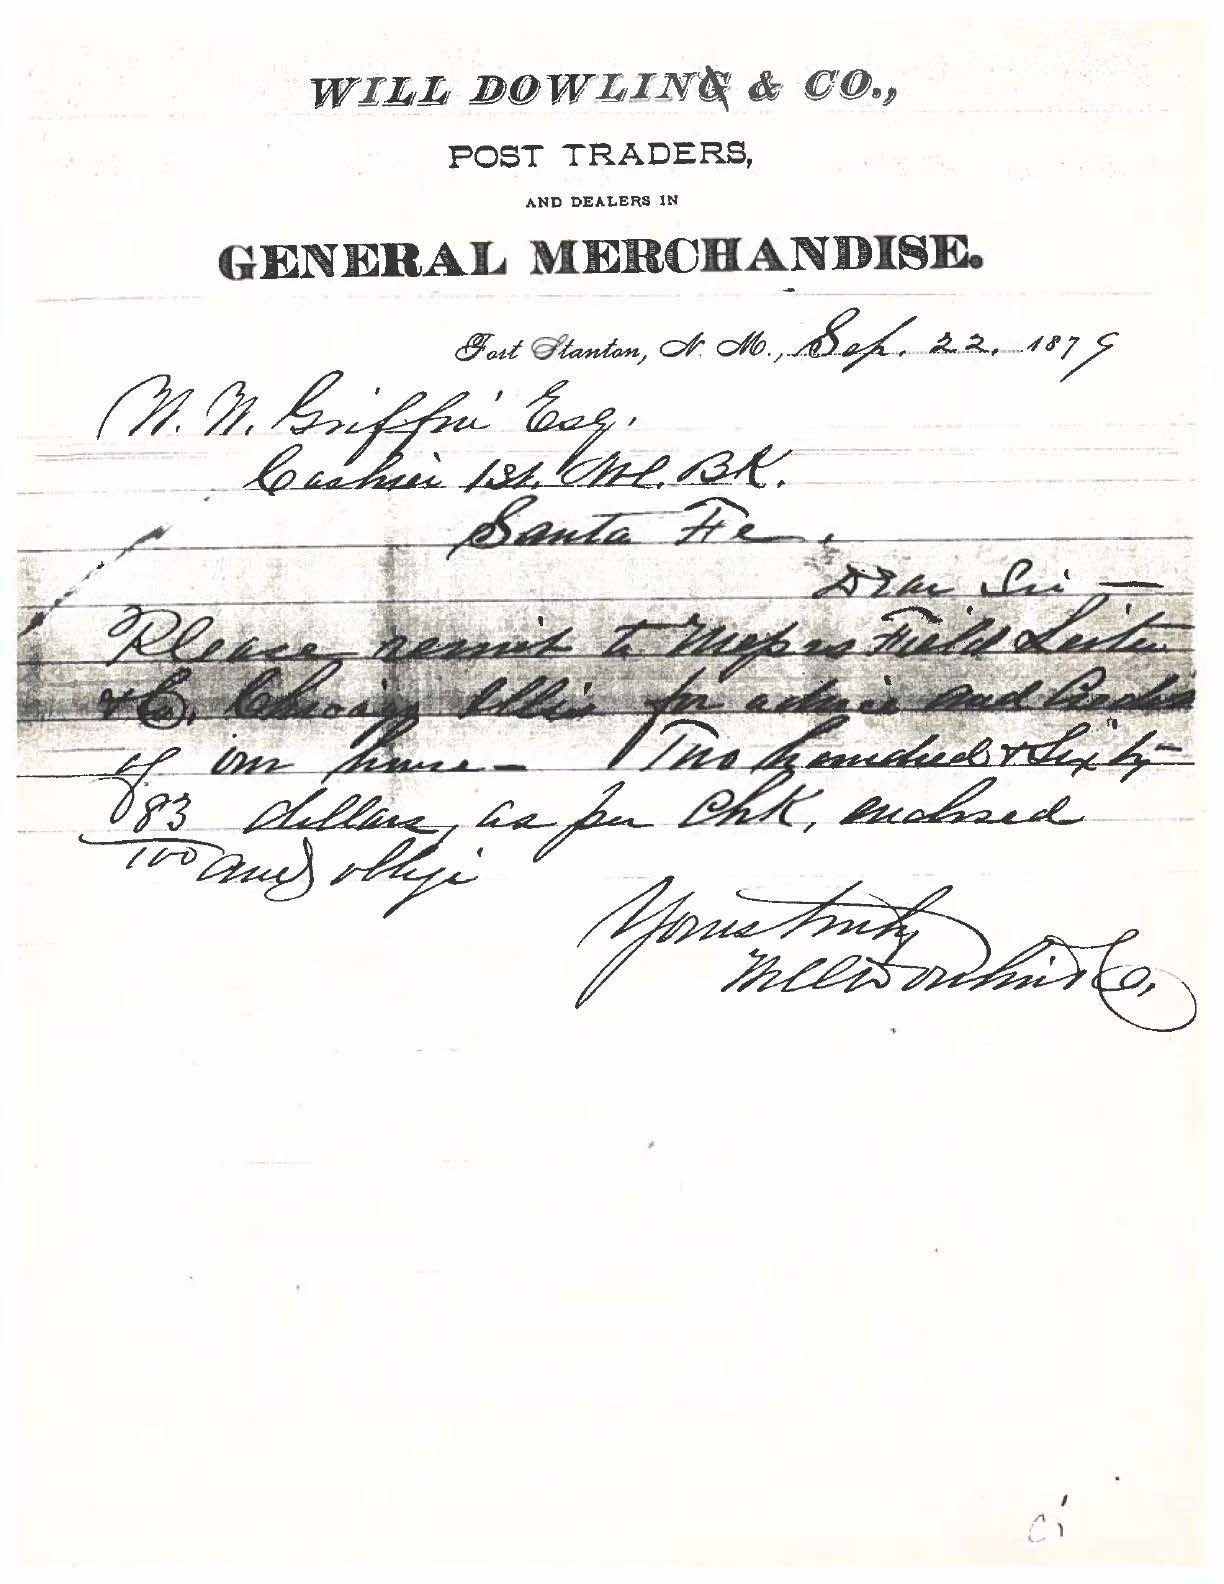 WILL DOWLING & CO.,
POST TRADERS,
AND DEALERS IN
GENERAL MERCHANDISE.
Fort Stanton, N. M., Sep. 22. 1879
W. W. Griffin Esq.
Cashier 1st. Nl. BK.
Santa Fe.
Dear Sir —
Please remit to Messrs Field Leiter
& Co. Chicago Illis for advice and Credit
of our house — Two hundred & Sixty
83/100 dollars, as per Chk, enclosed
and oblige
Yours truly
Will Dowlin & Co.